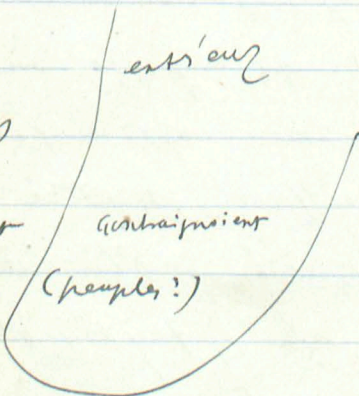 entr'eux
contraignoient
(peuples?)